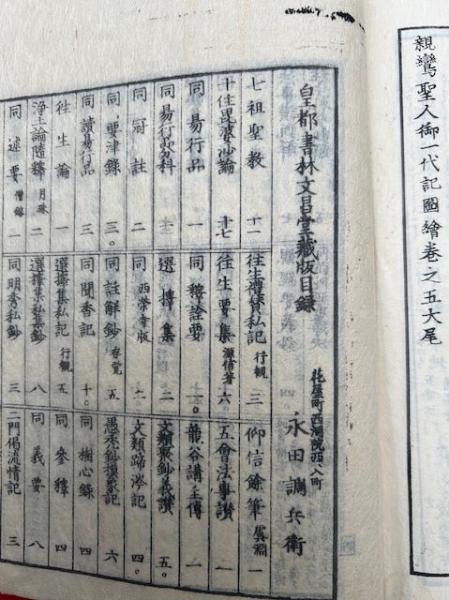 親鸞聖人御一代記圖繪卷之五大尾
皇都書林文昌堂藏版目録
花屋町西洞院西入町
永田調兵衛
七祖聖教 十一
十住毘婆沙論 十七
同 易行品 一
同 易行品分科
同 冠註 二
同 要津録 三
同 讀易行品 三
往生論 一
淨土論 二
同 述要 僧鎔 一
往生禮讃私記 行觀 三
往生要集 源信著 六
同 穐詮要
選擇集 二
同 西榮寺版 二
同 註解鈔 存覺 五
同 聞香記 十
選擇集私記 行觀 五
選擇集私集鈔 八
同 明香私鈔 三
仰信餘筆 一
五會法事讃 一
龍谷講主傳 一
文類聚鈔義讃 五
文類蹄涔記 四
愚禿鈔 六
同 樹心録 四
同 參釋 四
同 義要 八
二門偈流情記 三